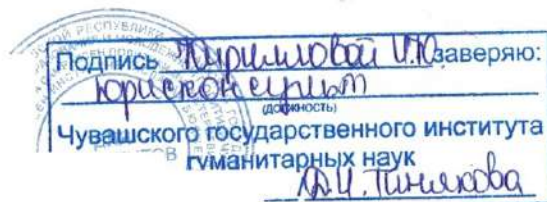 Подпись Кирилловой И.Ю. заверяю:
юрисконсульт
(должность)
Чувашского государственного института
гуманитарных наук
Д.И. Тинякова